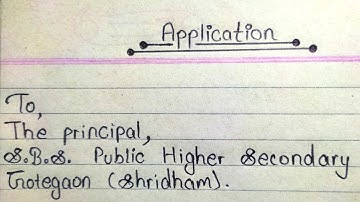 Application
To,
The principal,
S.B.S. Public Higher Secondary
Gotegaon (Shridham).